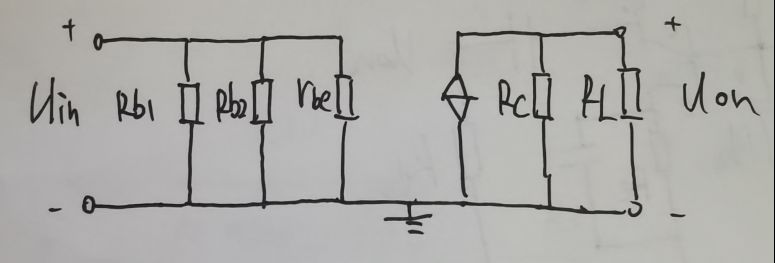 + +
Uin Rb1 Rb2 rbe Rc RL Uon
- -